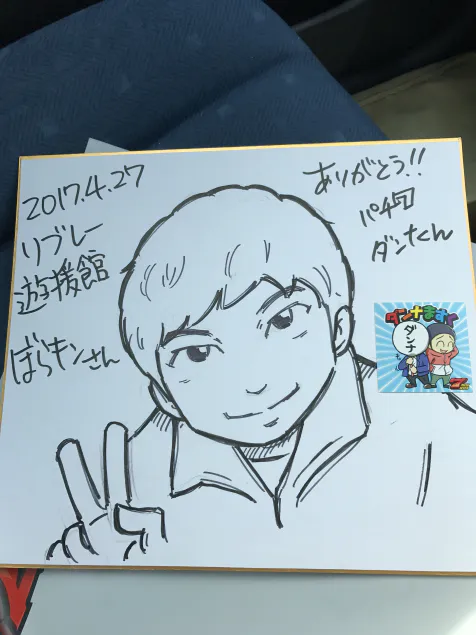 2017.4.27
リブレー
遊援館
ばらキンさん
ありがとう!!
パチ7
ダンナくん
ダンナ